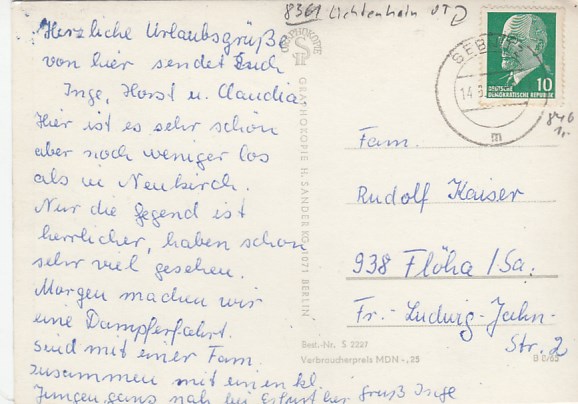 8361 Lichtenhein OT
Herzliche Urlaubsgrüße
von hier sendet Euch
Inge, Horst u. Claudia
Hier ist es sehr schön
aber noch weniger los
als in Neukirch.
Nur die Gegend ist
herrlicher, haben schon
sehr viel gesehen.
Morgen machen wir
eine Dampferfahrt.
sind mit einer Fam.
zusammen mit einen kl.
Jungen, ganz nah bei Erfurt her Gruß Inge
GRAPHOKOPIE
GRAPHOKOPIE H. SANDER KG, 1071 BERLIN
Best.-Nr. S 2227
Verbraucherpreis MDN -,25
SEBN
14.
m
10
DEUTSCHE
DEMOKRATISCHE REPUBLIK
846
1,-
Fam.
Rudolf Kaiser
938 Flöha / Sa.
Fr.-Ludwig-Jahn-
Str. 2
B 0/65